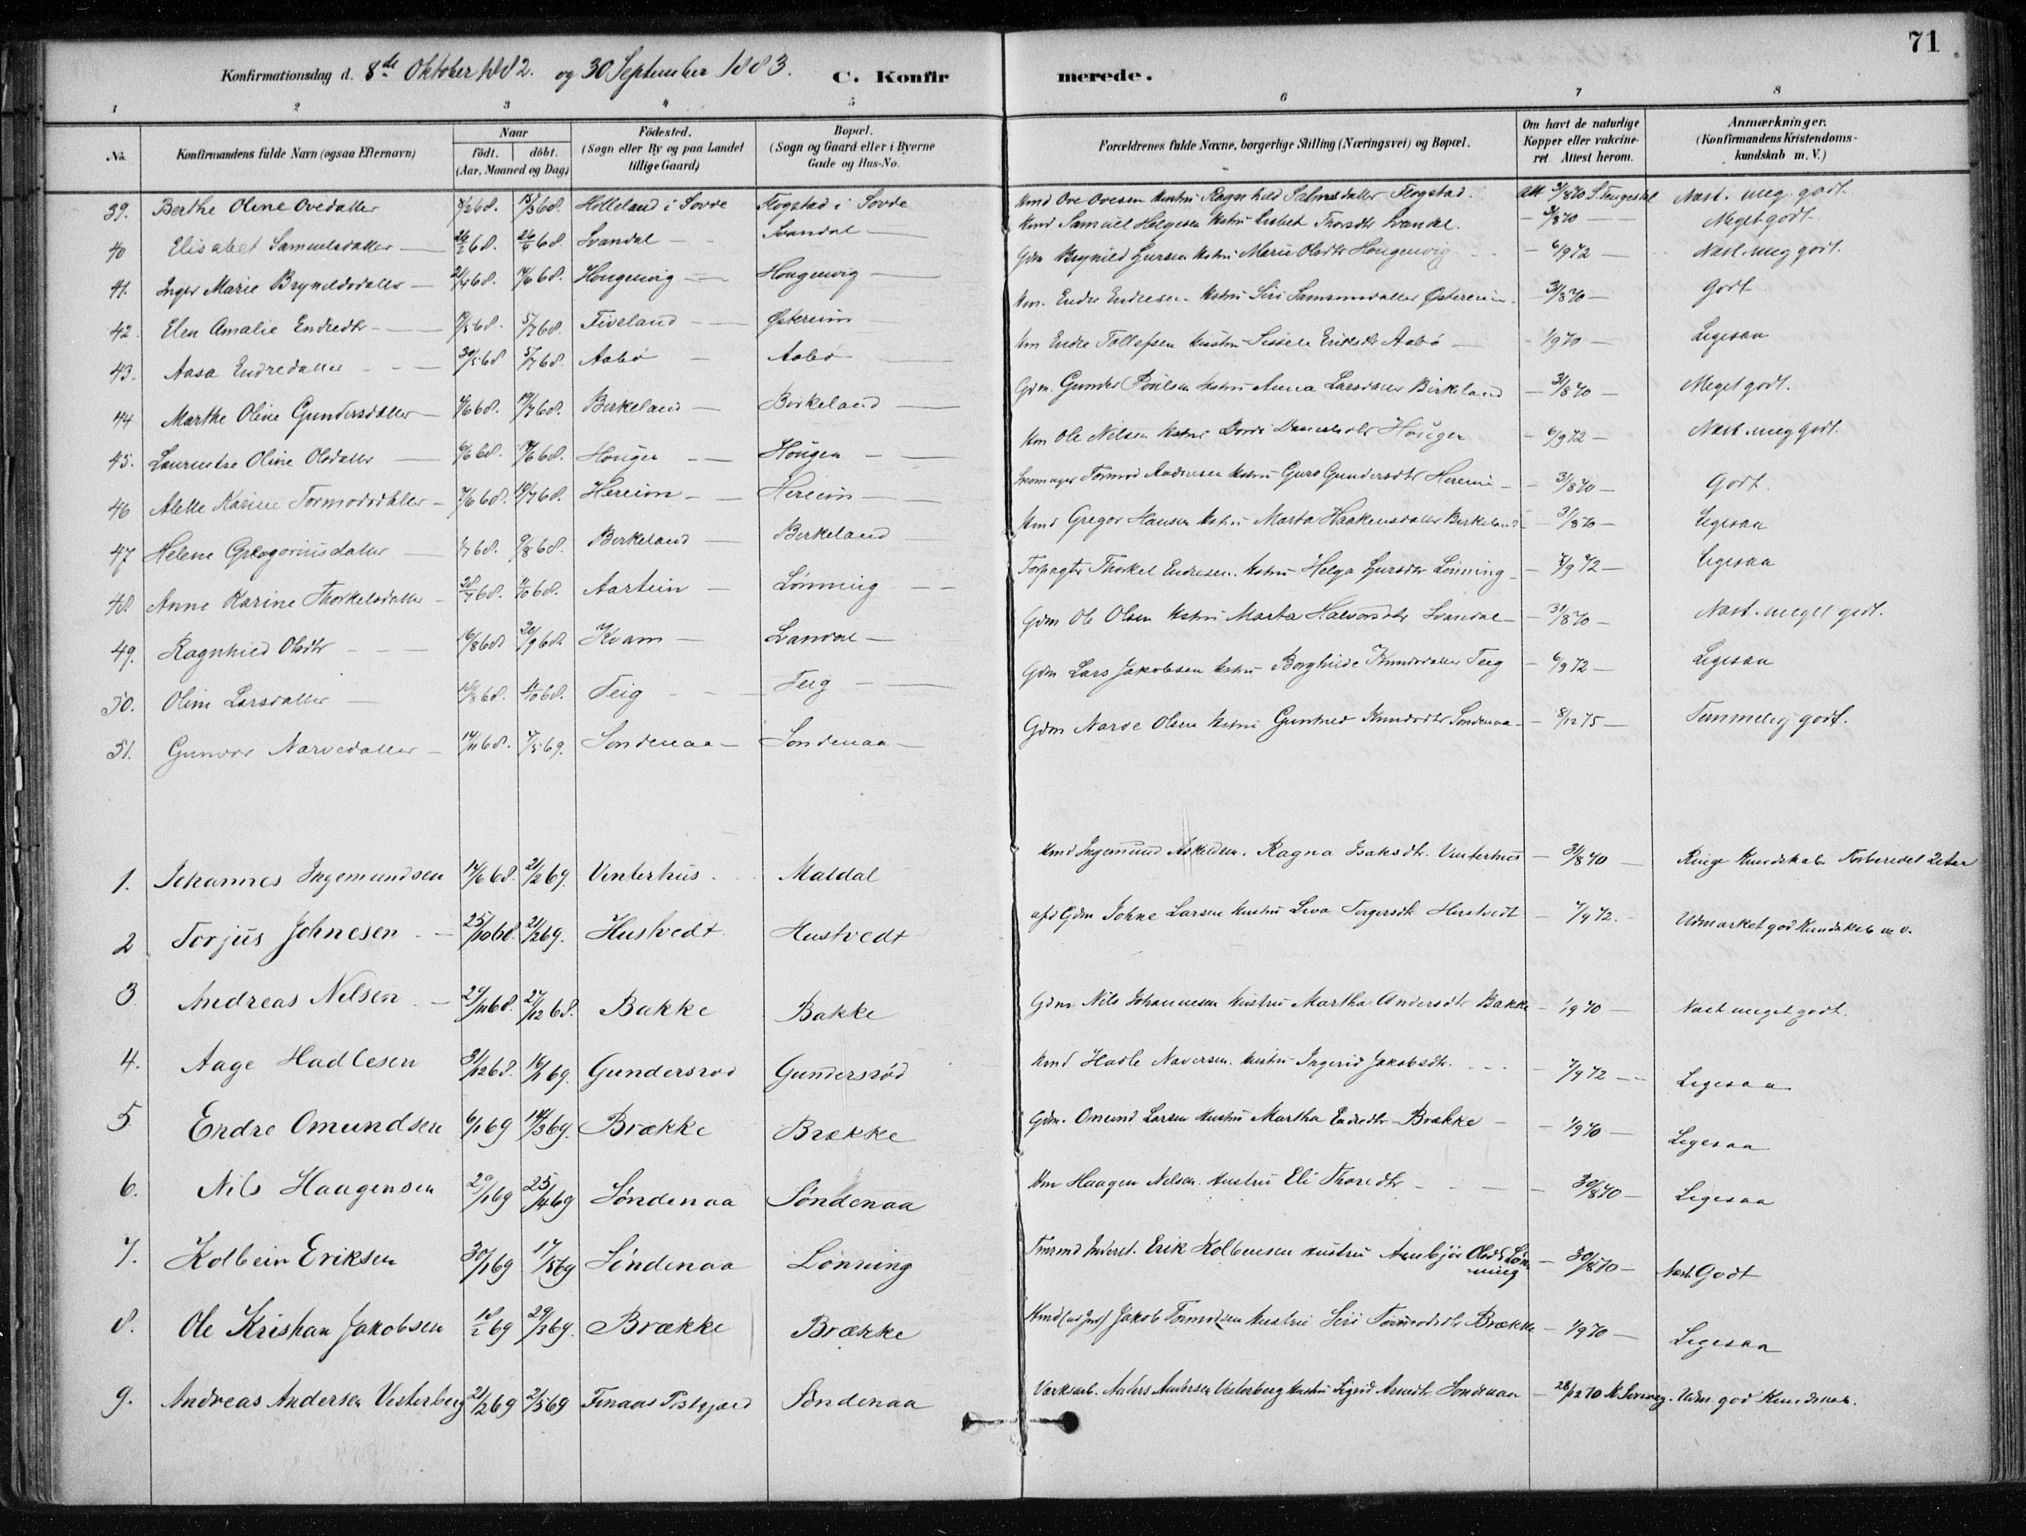 71
Konfirmationsdag d. 8de Oktober 1882. og 30 September 1883. C. Konfirmerede.
1 2 3 4 5 6 7 8
No. Konfirmandens fulde Navn (ogsaa Efternavn) Naar födt. döbt. (Aar, Maaned og Dag) Födested. (Sogn eller By og paa Landet tillige Gaard) Bopæl. (Sogn og Gaard eller i Byerne Gade og Hus-No. Forældrenes fulde Navne, borgerlige Stilling (Næringsvei) og Bopæl. Om havt de naturlige Kopper eller vakcineret. Attest herom. Anmærkninger. (Konfirmandens Kristendomskundskab m. V.)
39. Berthe Oline Ovedatter 68. 15/3 68. Helleland i Sovde Flogstad i Sovde Kmd Ove Ovesen Hustru Ragnhild Flogstad. Att 3/8 70 Nast. meg. godt.
40 Elisabet Samuelsdatter 26/2 68. 26/4 68. Svandal Svandal Kmd Samuel Helgesen Hustru Lisbet Svandal. 3/8 70 Meget godt.
41. Inger Marie Bryneldsdatter 21/4 68. 14/6 68. Hougenvig Hougenvig Gdm Brynild Hustru Marie Olsdtr Hougenvig 6/9 72 Nast. meg godt.
42. Elen Amalie Endredtr 68. 5/7 68. Fiveland Østereim Km. Endre Endresen. Hustru Siri Samsonsdatter Østereim 31/8 70 Godt
43. Aasa Endredatter 30/5 68 5/7 68. Aabø Aabø Km Endre Tollefsen Hustru Sissele Eriksdtr Aabø 1/9 70 Ligesaa
44 Marthe Oline Gundersdatter 68. 19/7 68. Birkeland Birkeland Gdm. Gunder Poulsen Hustru Anna Larsdatter Birkeland 31/8 70 Meget godt.
45. Oline Olsdatter 6/6 68. 68. Hougen Hougen Km Ole Nilsen Hustru Hougen 6/9 72 Nast. meg godt.
46 Alette Karine Tormodsdatter 7/6 68. 19/7 68. Hereim Hereim Skomager Tormod Hustru Guro Gundersdtr Hereim 31/8 70 Godt.
47 Helene Gregoriusdatter 68. 9/8 68. Birkeland Birkeland Kmd Gregor Hansen Hustru Marta Haakensdatter Birkeland 31/8 70 Ligesaa
48 Anne Karine Thorkelsdatter 28/7 68. 11/10 68. Lønning Forpagter Thorkel Endresen. Hustru Helga Lønning 9 72 Ligesaa
49. Ragnhild Olsdtr 16/8 68 20/9 68. Kvam Svandal Gdm Ole Olsen Hustru Marta Halvorsdtr Svandal 31/8 70 Nast. meget godt.
50. Oline Larsdatter 68. 11/10 68. Teig Teig Gdm Lars Jakobsen Hustru Borghilde Knudsdatter Teig 6/9 72 Ligesaa
51. Gunvor Narvedatter 14/11 68. 7/5 69. Sondenaa Sondenaa Gdm Narve Olsen Hustru Gunhild Knudsdtr Sondenaa 8/12 75 Temmelig godt.
1. Johannes Ingemundsen 14/6 68. 21/2 69. Vinterhus Maldal Kmd Ingemund Askildsen. Ragna Isaksdtr. Vinterhus 31/8 70 Ringe Kundskab. Forberedet 2 Aar
2 Torjus Johnesen 25/10 68. 21/2 69. Hustvedt Hustvedt Gdm Johne Larsen Hustru Siva Torgersdtr Hustvedt 7/9 72. Udmærket god Kundskab m. v.
3 Andreas Nilsen 29/11 68. 27/12 68. Bakke Bakke Gdm Nils Johannesen Hustru Martha Andersdtr Bakke 1/9 70 Nast meget godt.
4. Aage Hadlesen 31/12 68. 16/1 69. Gundersrød Gundersrød Kmd Hadle Hustru Ingerid Jakobsdtr. 7/9 72 Ligesaa
5 Endre Omundsen 6/1 69 14/3 69. Brække Brække Gdm. Omund Larsen Hustru Martha Endredtr Brække 1/9 70 Ligesaa
6. Nils Haagensen 20/1 69 25/4 69 Søndenaa Søndenaa Km Haagen Nilsen Hustru Eli Thoredtr 30/8 70 Ligesaa
7. Kolbein Eriksen 30/1 69 17/5 69 Søndenaa Lønning Inderst. Erik Kolbensen Hustru Anbjør Olsdtr Lønning 30/8 70 Nast. Godt
8. Ole Kristian Jakobsen 18/2 69 29/3 69. Brække Brække Jakob Tormodsen Hustru Siri Tormodsdtr Brække 1/9 70 Ligesaa
9. Andreas Andersen Vesterberg 21/2 69 2/5 69 Søndenaa Anders Andersen Vesterberg Hustru Sigrid Søndenaa 28/12 70 Udm. god Kundskab.